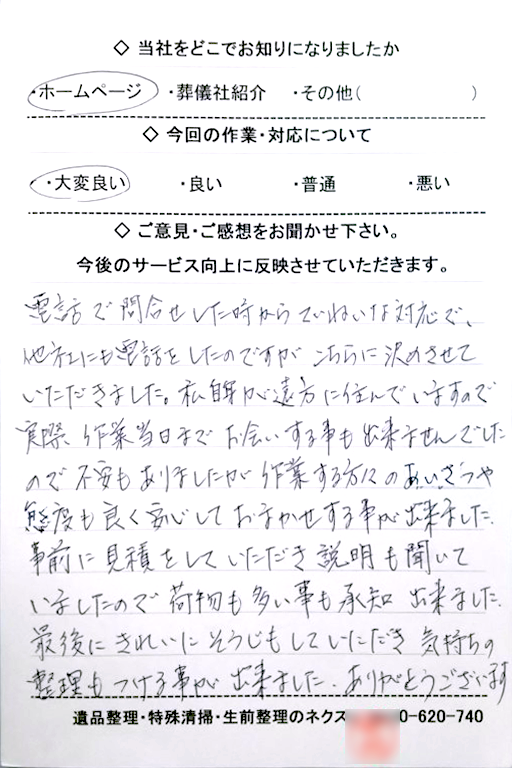 ◇ 当社をどこでお知りになりましたか
・ホームページ ・葬儀社紹介 ・その他( )
◇ 今回の作業・対応について
・大変良い ・良い ・普通 ・悪い
◇ ご意見・ご感想をお聞かせ下さい。
今後のサービス向上に反映させていただきます。
電話で問合せした時からていねいな対応で、
他社にも電話をしたのですが こちらに決めさせて
いただきました。私自身が遠方に住んでいますので
実際 作業当日まで お会いする事も出来ませんでした
ので 不安もありましたが 作業する方々のあいさつや
態度も良く安心しておまかせする事が出来ました。
事前に見積をしていただき 説明も聞いて
いましたので 荷物も多い事も承知 出来ました。
最後に きれいに そうじもしていただき 気持ちの
整理も つける事が 出来ました。ありがとうございます
遺品整理・特殊清掃・生前整理のネクス 0-620-740